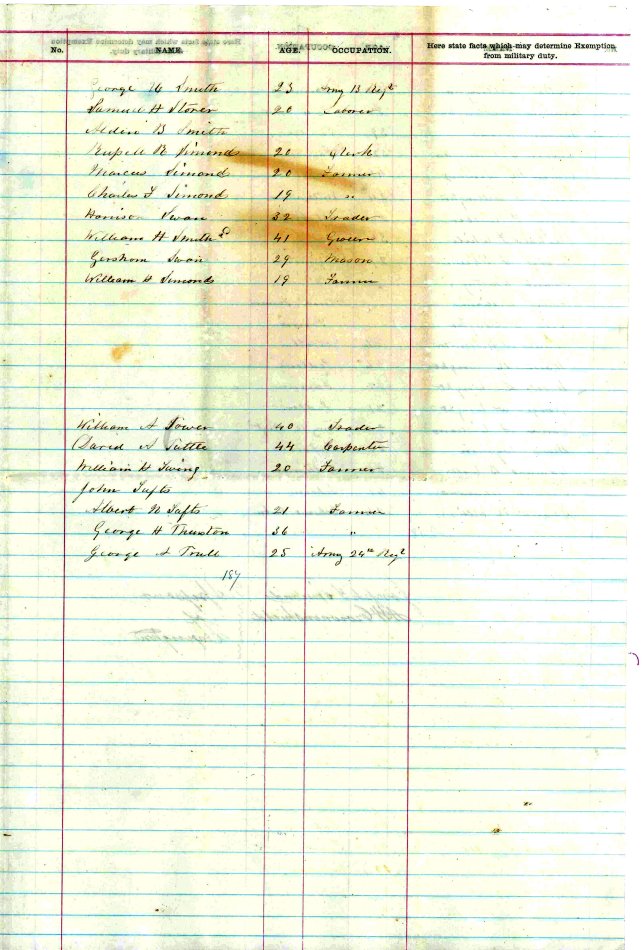 No. NAME. AGE. OCCUPATION. Here state facts which may determine Exemption from military duty.
George Smith 23 Army 13 Regt
Samuel H Storer 20 Laborer
Alden B Smith
Russell R Simonds 20 Clerk
Marcus Simond 20 Farmer
Charles F Simond 19 "
Harrison Swan 32 Trader
William H Smith 2d 41 Grocer
Gershom Swan 29 Mason
William H Simonds 19 Farmer
William A Tower 40 Trader
David A Tuttle 44 Carpenter
William H Twing 20 Farmer
John Tufts
Albert N Tufts 21 Farmer
George H Thurston 36 "
George A Trull 25 Army 24th Regt
189